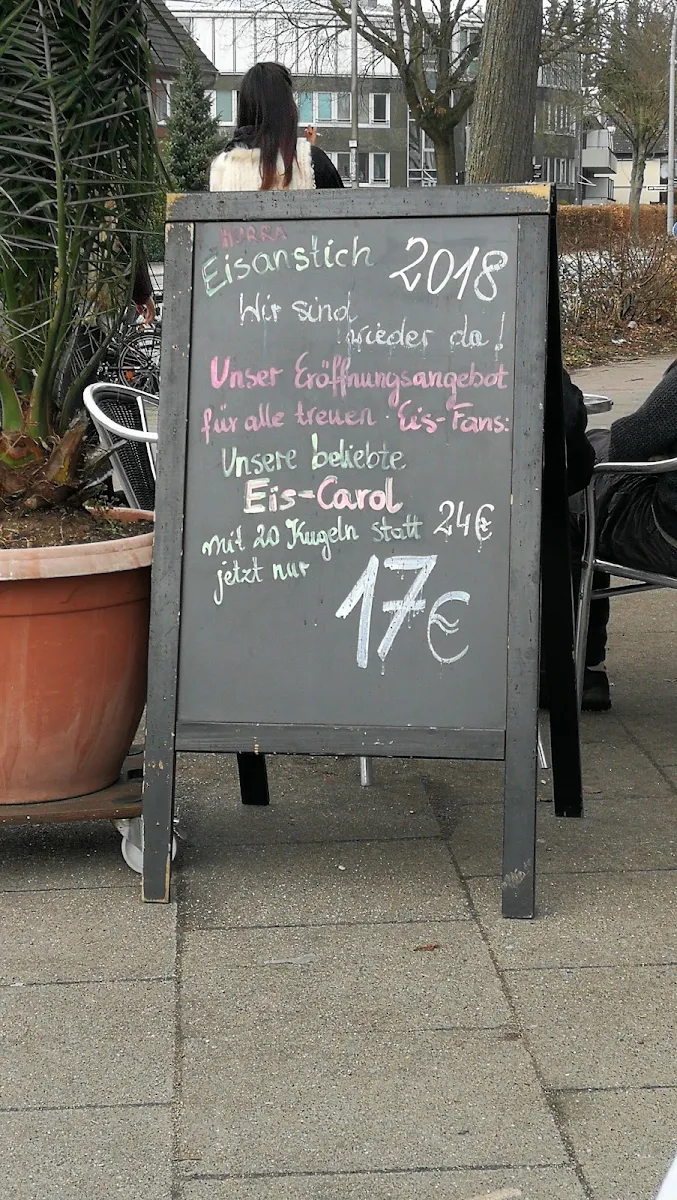 HURRA
Eisanstich 2018
Wir sind
wieder da!
Unser Eröffnungsangebot
für alle treuen Eis-Fans:
Unsere beliebte
Eis-Carol
mit 20 Kugeln statt 24€
jetzt nur 17€